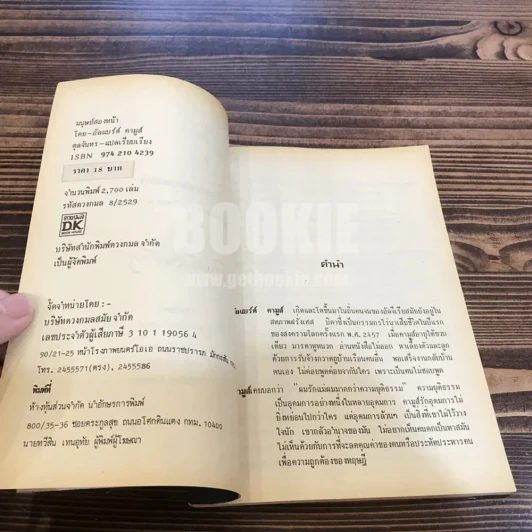 มนุษย์สองหน้า
โดย-อัลแบร์ต์ คามูส์
ตุลจันทร-แปลเรียบเรียง
ISBN 974 210 4239
ราคา 18 บาท
จำนวนพิมพ์ 2,700 เล่ม
รหัสดวงกมล 8/2529
ดวงกมล
D.K.
BOOK HOUSE
บริษัทสำนักพิมพ์ดวงกมล จำกัด
เป็นผู้จัดพิมพ์
จัดจำหน่ายโดย:-
บริษัทดวงกมลสมัย จำกัด
เลขประจำตัวผู้เสียภาษี 3 10 1 19056 4
90/21-25 หน้าโรงภาพยนตร์โอเอ ถนนราชปรารภ มักกะสัน
โทร. 2455571(ตรง), 2455586
พิมพ์ที่
ห้างหุ้นส่วนจำกัด นำอักษรการพิมพ์
800/35-36 ซอยตระกูลสุข ถนนอโศกดินแดง กทม. 10400
นายทวีสิน เทนอุทัย ผู้พิมพ์ผู้โฆษณา
BOOKIE
www.getbookie.com
คำนำ
อัลแบร์ต์ คามูส์ เกิดและโตขึ้นมาในถิ่นคนจนของอัลจีเรียสมัยยังอยู่ใน
สหภาพฝรั่งเศส บิดาซึ่งเป็นกรรมกรไร่นาเสียชีวิตในปีแรก
ของสงครามโลกครั้งแรก พ.ศ. 2457 เมื่อคามูส์อายุได้ขวบ
เดียว มารดาหูหนวก อ่านหนังสือไม่ออก หาเลี้ยงตัวและลูก
ด้วยการรับจ้างกวาดถูบ้านเรือนคนอื่น พอเสร็จงานกลับบ้าน
ตนเอง ไม่ค่อยพูดค่อยจากับใคร เพราะเป็นคนไม่ชอบพูด
คามูส์เคยบอกว่า "ผมรักแม่ผมมากกว่าความยุติธรรม" ความยุติธรรม
เป็นอุดมการอย่างหนึ่งในหลายอุดมการ คามูส์รักอุดมการไม่
ยิ่งหย่อนไปกว่าใคร แต่อุดมการล้วนๆ เป็นสิ่งที่เขาไม่ไว้วาง
ใจนัก เขากลัวอำนาจของมัน ไม่อยากเห็นคนตกเป็นทาสมัน
ไม่เห็นด้วยกับการที่จะลดคุณค่าของคนหรือประหัตประหารคน
เพื่อความถูกต้องของทฤษฎี